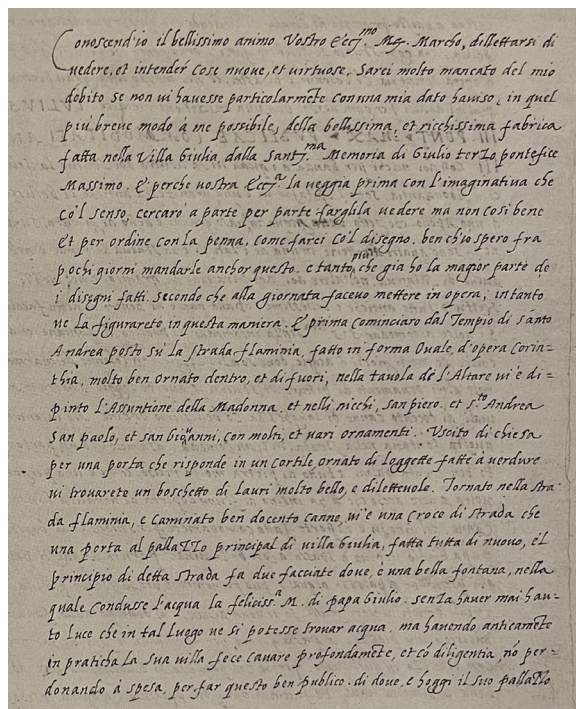 Conoscend'io il bellissimo animo Vostro Ecc.mo M. Marcho, dillettarsi di
uedere, et intender cose nuoue, et uirtuose, sarei molto mancato del mio
debito se non ui hauesse particolarmẽte con una mia dato hauiso, in quel
piu breue modo à me possibile, della bellissima, et ricchissima fabrica
fatta nella Villa Giulia, dalla Sant.ma Memoria di Giulio terzo pontefice
Massimo. E perche uostra Ecc.a la ueggia prima con l'imaginatiua che
co'l senso, cercaro a parte per parte farghla uedere ma non cosi bene
et per ordine con la penna, come farei co'l disegno. ben ch'io spero fra
pochi giorni mandarle anchor questo. e tanto piu che gia ho la magior parte de
i disegni fatti. Secondo che alla giornata faceuo mettere in opera, in tanto
ue la figurarete, in questa maniera. E prima cominciaro dal Tempio di santo
Andrea posto su la strada flaminia, fatto in forma Ouale, d'opera Corin=
thia, molto ben ornato dentro, et di fuori, nella tauola de l'Altare ui e di=
pinto l'Assuntione della Madonna. et nelli nicchi, san piero. et s.to Andrea
san paolo, et san Giouanni, con molti, et uari ornamenti. Vscito di chiesa
per una porta che risponde in un cortile, ornato di loggette fatte à uerdure
ui trouarete un boschetto di lauri molto bello, e diletteuole. Tornato nella stra
da flaminia, e caminato ben docento canne, ui e una Croce di strada che
una porta al pallazzo principal di uilla Giulia, fatta tutta di nuouo, e'l
principio di detta strada fa due facciate doue, è una bella fontana, nella
quale Condusse l'acqua la feliciss.a M. di papa Giulio. senza hauer mai hau=
to luce che in tal luogo ue si potesse trouar acqua. ma hauendo anticamẽte
in praticha la sua uilla fece cauare profondamẽte, et cõ diligentia, nõ per=
donando à spesa, per far questo ben publico. di doue, e hoggi il suo pallazzo